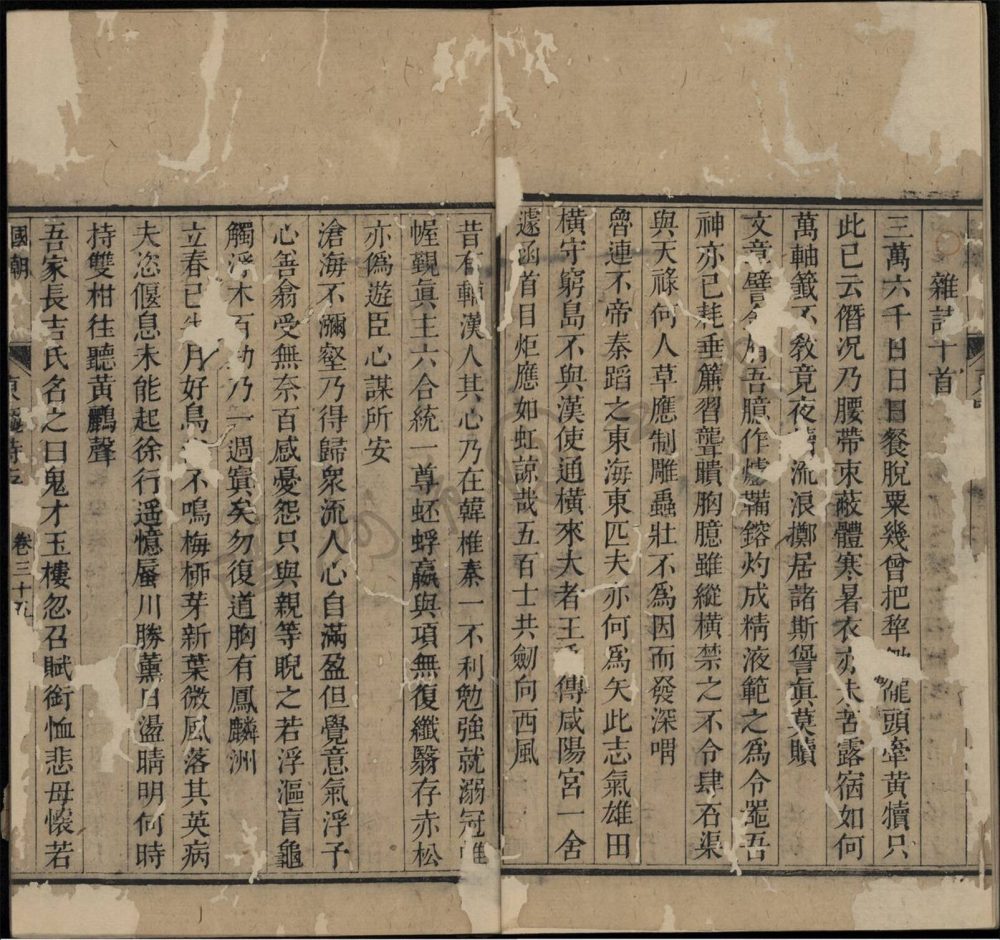 雜詩十首
三萬六千日日日餐脫粟幾曾把犂鋤隴頭牽黃犢只
此已云僭况乃腰帶束蔽體寒暑衣亦未苦露宿如何
萬軸籤不敎竟夜讀流浪擲居諸斯眚眞莫贖
文章譬金吾臆作爐鞴鎔灼成精液範之爲令器吾
神亦已耗垂簾習聾聵胸臆雖縱橫禁之不令肆石渠
與天祿何人草應制雕蟲壯不爲因而發深喟
魯連不帝秦蹈之東海東匹夫亦何爲矢此志氣雄田
橫守窮島不與漢使通橫來大者王傳咸陽宮一舍
遽函首目炬應如虹諒哉五百士共劒向西風
昔有輔漢人其心乃在韓椎秦一不利勉強就溺冠
幄覲眞主六合統一尊蚍蜉嬴與項無復纖翳存赤松
亦僞遊臣心謀所安
滄海不瀰壑乃得歸衆流人心自滿盈但覺意氣浮予
心吾翕受無奈百感憂怨只與親等睨之若浮漚盲龜
觸浮木百劫乃一週寘矣勿復道胸有鳳麟洲
立春已半月好鳥不鳴梅柳芽新葉微風落其英病
夫恣偃息未能起徐行遥憶蜃川勝薰日盪晴明何時
持雙柑往聽黃鸝聲
吾家長吉氏名之曰鬼才玉樓忽召賦銜恤悲母懷若
國朝 卷三十九